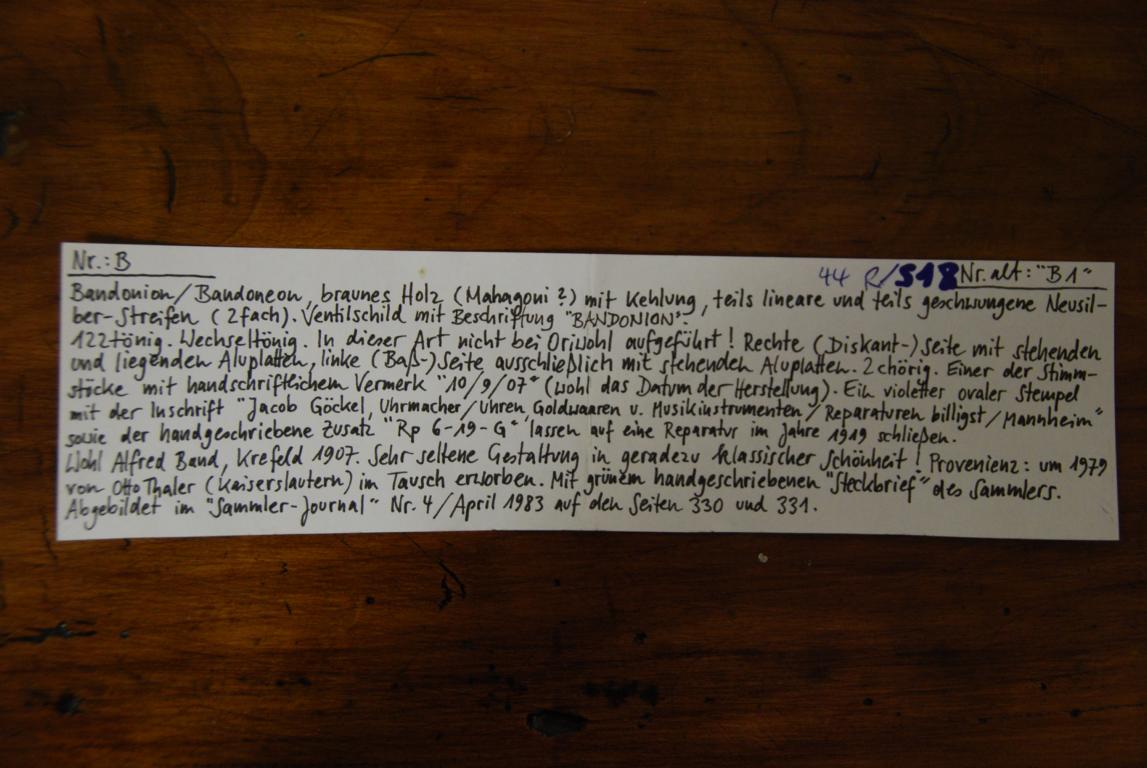 Nr.: B 44 R/S18 Nr. alt: "B1"
Bandonion/Bandoneon, braunes Holz (Mahagoni?) mit Kehlung, teils lineare und teils geschwungene Neusil-
ber-Streifen (2fach). Ventilschild mit Beschriftung "BANDONION".
122tönig. Wechseltönig. In dieser Art nicht bei Oriwohl aufgeführt! Rechte (Diskant-)Seite mit stehenden
und liegenden Aluplatten, linke (Baß-)Seite ausschließlich mit stehenden Aluplatten. 2chörig. Einer der Stimm-
stöcke mit handschriftlichem Vermerk "10/9/07" (wohl das Datum der Herstellung). Ein violetter ovaler Stempel
mit der Inschrift "Jacob Göckel, Uhrmacher/Uhren, Goldwaaren u. Musikinstrumenten/Reparaturen billigst/Mannheim"
sowie der handgeschriebene Zusatz "Rp 6-19-G" lassen auf eine Reparatur im Jahre 1919 schließen.
Wohl Alfred Band, Krefeld 1907. Sehr seltene Gestaltung in geradezu klassischer Schönheit! Provenienz: um 1979
von Otto Thaler (Kaiserslautern) im Tausch erworben. Mit grünem handgeschriebenen "Steckbrief" des Sammlers.
Abgebildet im "Sammler-Journal" Nr. 4/April 1983 auf den Seiten 330 und 331.